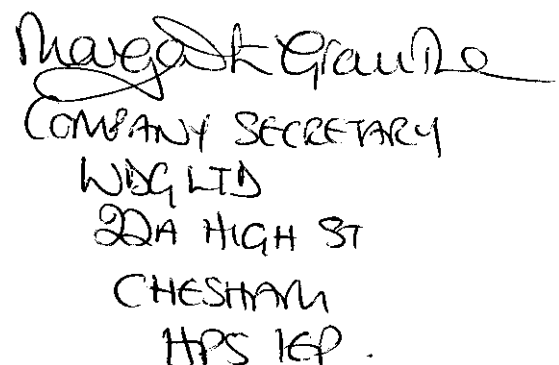 Margaret
COMPANY SECRETARY
WDG LTD
22A HIGH ST
CHESHAM
HP5 1EP.